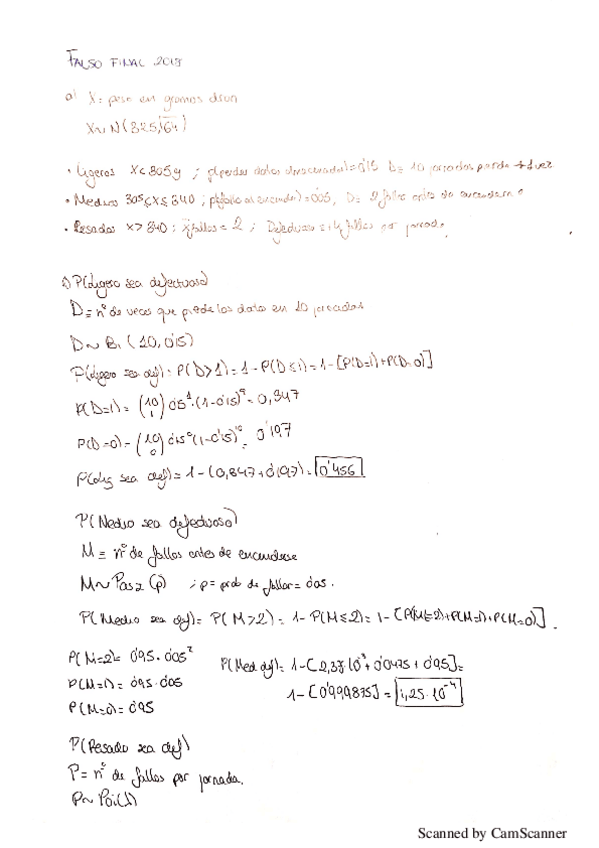 FALSO FINAL 2018
a) X: peso en gramos dron
X~N(325,√64)
• Ligeros X<305g ; p(perder datos almacenados)=0'15 D= 10 jornadas pierda +1 vez
• Medios 305≤X≤340 ; p(fallo al encender)=0'05, D= 2 fallos antes de encenderse
• Pesados X>340 ; fallos=2 ; Defectuoso 4 fallos por jornada
1) P(ligero sea defectuoso)
D= nº de veces que pierde los datos en 10 jornadas
D~Bi(10,0'15)
P(ligero sea def)= P(D>1)= 1-P(D≤1)=1-[P(D=1)+P(D=0)]
P(D=1)= (10 1) 0'15¹·(1-0'15)⁹= 0,347
P(D=0)= (10 0) 0'15⁰(1-0'15)¹⁰= 0'197
P(lig sea def)= 1-(0,347+0'197)= 0'456
P(Medio sea defectuoso)
M= nº de fallos antes de encenderse
M~Pas2(p) ; p= prob de fallar= 0'05.
P(Medio sea def)= P(M>2)= 1-P(M≤2)= 1-[P(M=2)+P(M=1)+P(M=0)].
P(M=2)= 0'95·0'05²
P(M=1)= 0'95·0'05
P(M=0)= 0'95
P(Med def)= 1-[2,37·10⁻³+0'0475+0'95]=
1-[0'999875]= 1,25·10⁻⁴
P(Pesado sea def)
P= nº de fallos por jornada.
P~Poi(λ)
Scanned by CamScanner